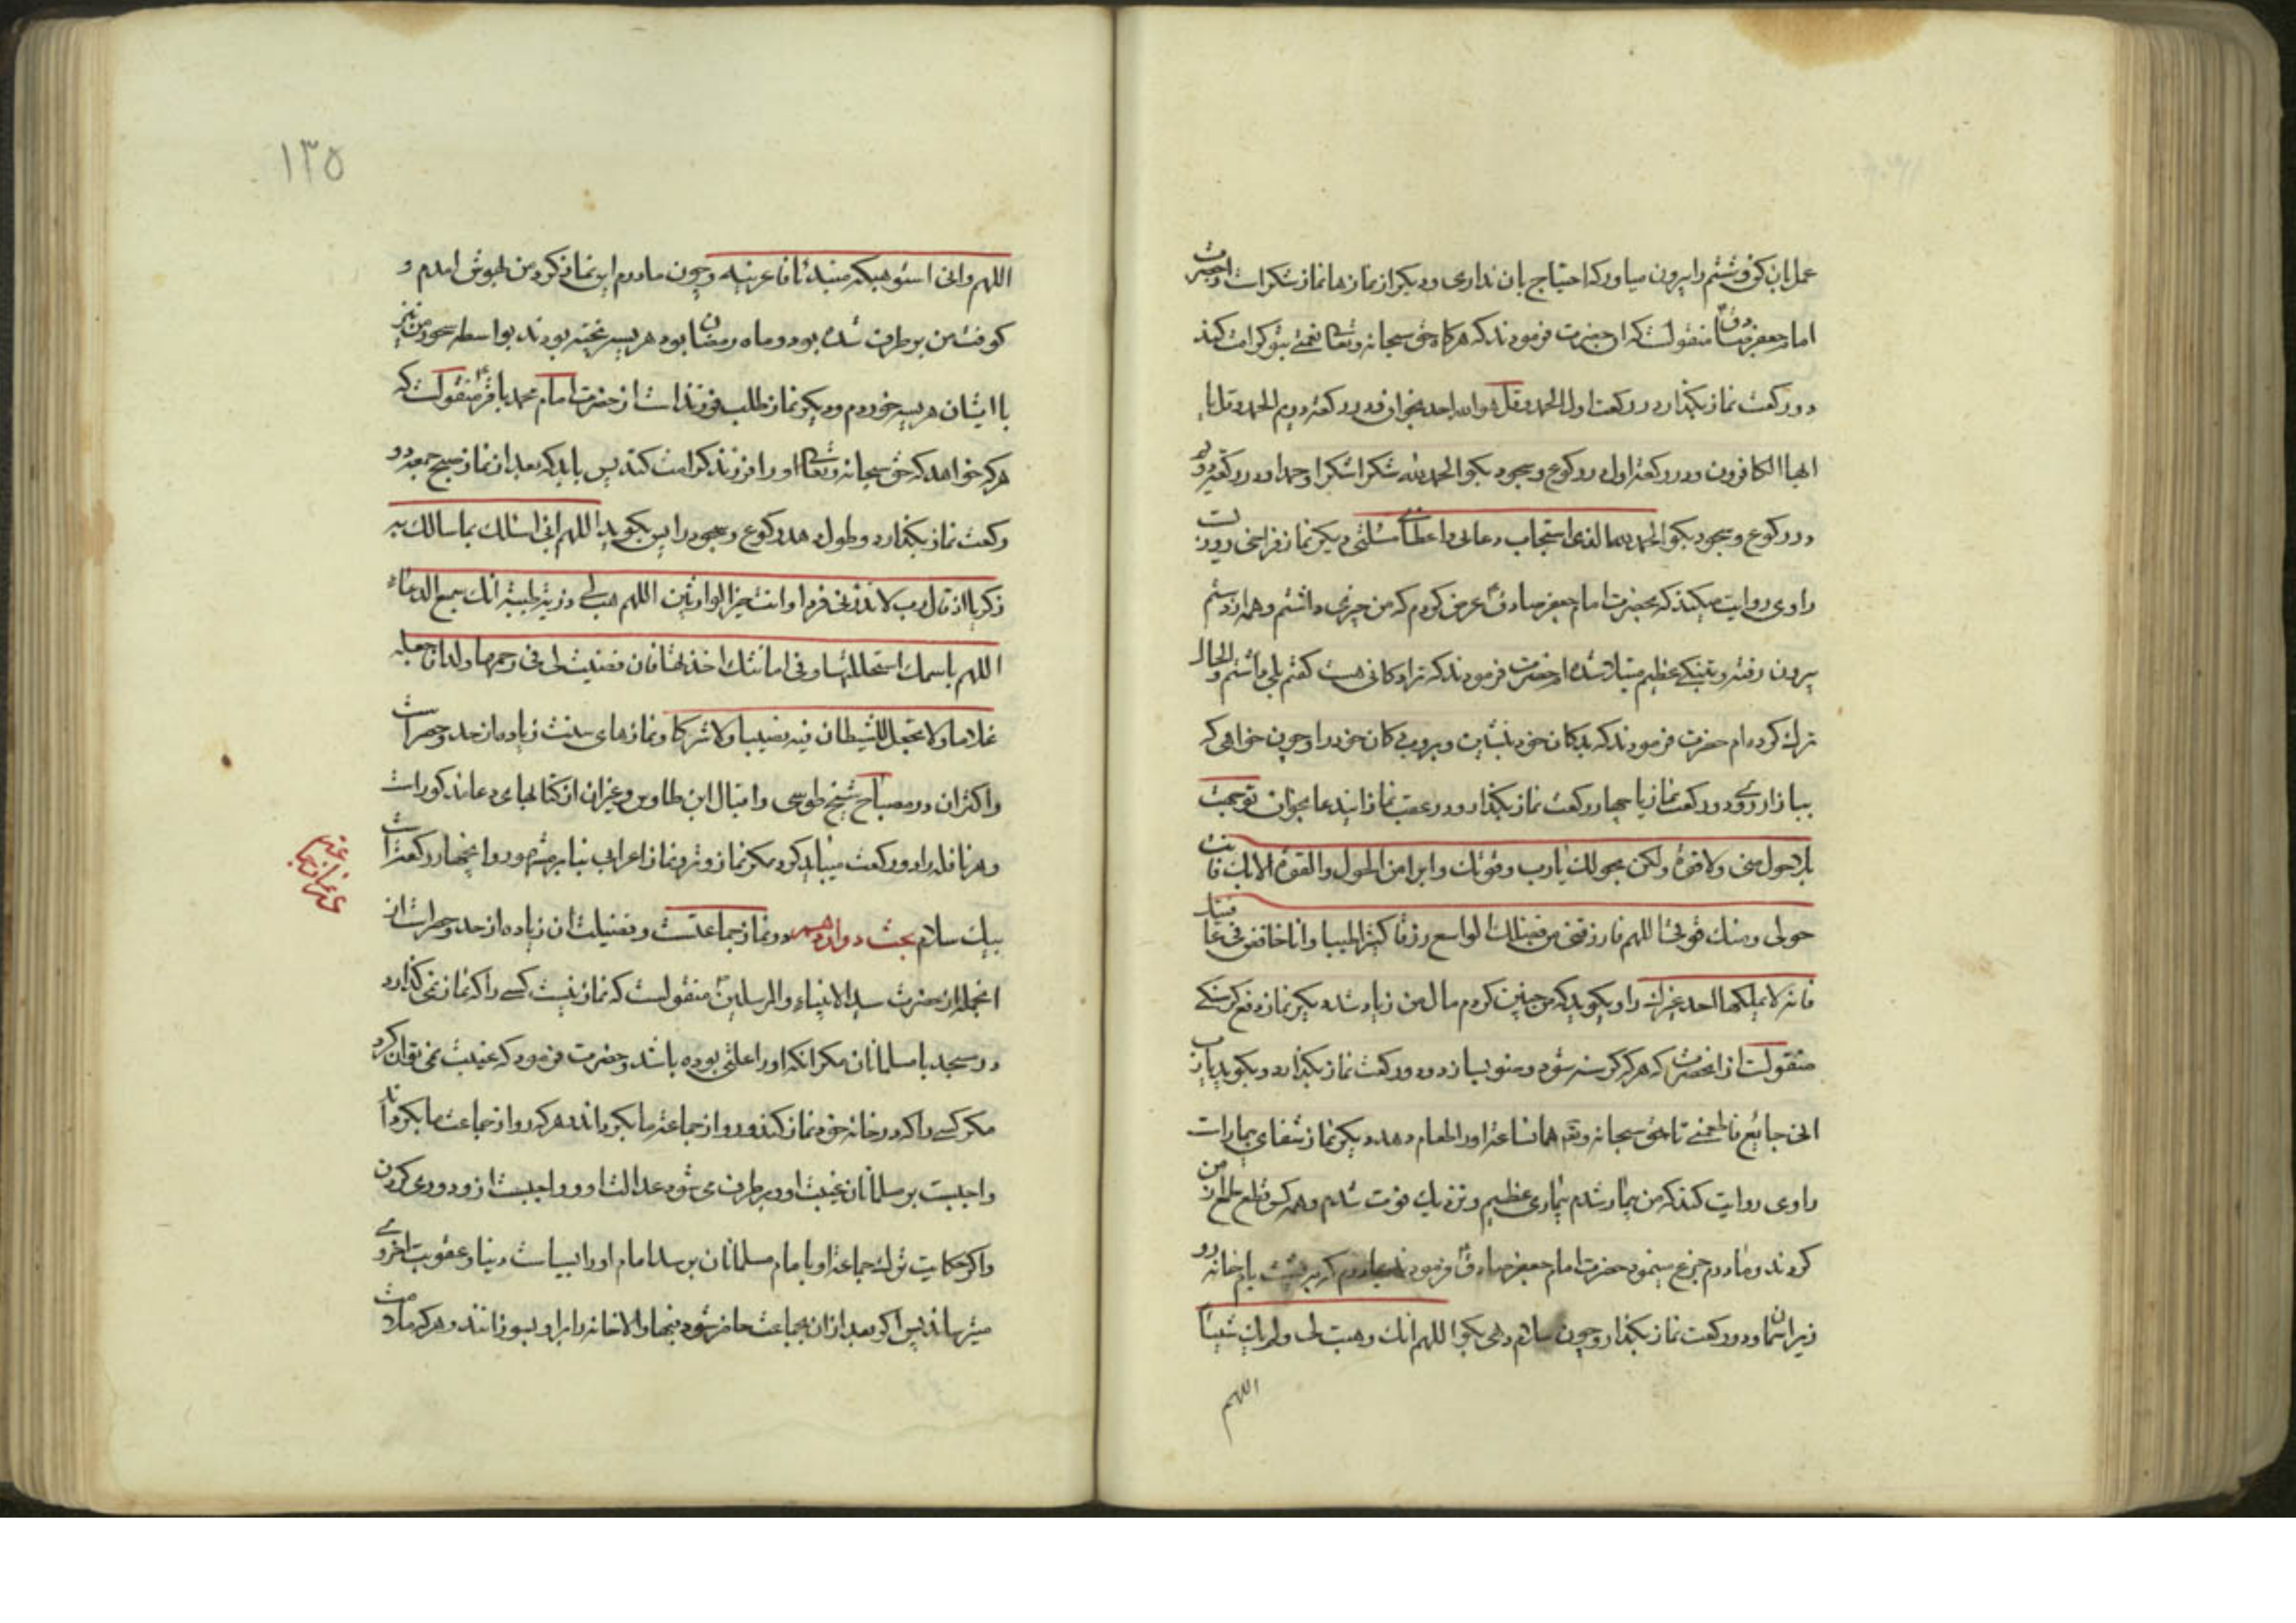 عمل بان کن و شتم را بیرون میاور که احتیاج بان نداری و دیگر از نمازها نماز شکر است و احضرت
امام جعفر صادق منقولست که احضرت فرمودند که هرگاه حق سبحانه وتعالی نعمتی بتو کرامت کند
دو رکعت نماز بگذار در رکعت اول الحمد و قل هو الله احد بخوان و در رکعة دویم الحمد و قل یا
ایها الکافرون و در رکعة اول در رکوع و سجود بگو الحمد لله شکرا شکرا و حمدا و در رکعة دویم
در رکوع و سجود بگو الحمد لله الذی استجاب دعائی و اعطانی مسئلتی دیگر نماز فراخی روزیست
راوی روایت میکند که بحضرت امام جعفر صادق عرض کردم که من چیزی داشتم و همه از دستم
بیرون رفته و بتنگی عظیم مبتلا شده‌ام حضرت فرمودند که ترا دکانی هست گفتم بلی داشتم و الحال
ترک کرده‌ام حضرت فرمودند که بدکان خود بنشین و بروب دکان خود را و چون خواهی که
ببازار روی دو رکعت نماز یا چهار رکعت نماز بگذار و در عقب نماز ایندعا بخوان توجهت
بلا حول منی ولا قوة ولکن بحولک یا رب و قوتک و ابرا من الحول و القوة الا بک فانت
حولی و منک قوتی اللهم فارزقنی من فضلک الواسع رزقا کثیرا طیبا و انا خافض فی عافیتک
فانه لا یملکها احد غیرک راوی گوید که من چنین کردم مال من زیاد شد دیگر نماز دفع گرسنگی
منقولست از انحضرت که هرکه گرسنه شود وضو بسازد و دو رکعت نماز بگذارد و بگوید یا رب
انی جائع فاطعمنی تا حق سبحانه و تعالی همان ساعة او را طعام دهد دیگر نماز شفای بیمار است
راوی روایت کند که من بیمار شدم بیماری عظیم و نزدیک فوت شدم و همه کس قطع طمع از من
کردند و مادرم جزع مینمود حضرت امام جعفر صادق فرمودند بمادرم که بر پشت بام خانه رو
زیر اسمان و دو رکعت نماز بگذار و چون سلام دهی بگو اللهم انک وهبته لی ولم یک شیئا
اللهم
١٣٥
اللهم وانی استوهبکه مبتدئا فاعرنیه و چون مادرم این نماز کرد من بهوش امدم و
کوفت من برطرف شده بود و ماه رمضان بود هریسه پخته بودند بواسطه سحور من نیز
با ایشان هریسه خوردم و دیگر نماز طلب فرزند است از حضرت امام محمد باقر منقولست که
هرکه خواهد که حق سبحانه وتعالی او را فرزند کرامت کند پس باید که بعد از نماز صبح جمعه دو
رکعت نماز بگذارد و طول دهد رکوع و سجود را پس بگوید اللهم انی اسئلک بما سالک به
زکریا اذ قال رب لا تذرنی فردا و انت خیر الوارثین اللهم هب لی ذریة طیبة انک سمیع الدعاء
اللهم باسمک استحللتها و فی امانتک اخذتها فان قضیت لی فی رحمها ولدا فاجعله
غلاما ولا تجعل للشیطان فیه نصیبا ولا شرکا و نمازهای سنت زیاده از حد و حصر است
و اکثر ان در مصباح شیخ طوسی و اقبال ابن طاوس و غیر ان از کتابهای دعا مذکور است
و هر نافله را دو رکعت میباید کرد مگر نماز وتر و نماز اعرابی بنا بر مشهور و انچهار رکعتست
بیک سلام بحث دوازدهم در نماز جماعتست و فضیلت ان زیاده از حد و حصر است از
انجمله از حضرت سید الانبیاء و المرسلین منقولست که نماز نیست کسی را که نماز نمی‌گذارد
در مسجد با مسلمانان مگر انکه او را علتی بوده باشد و حضرت فرمود که غیبت نمی‌توان کرد
مگر کسی را که در خانه خود نماز کند و رو از جماعة ما بگرداند و هرکه رو از جماعت ما بگرداند
واجبست بر مسلمانان غیبت او و برطرف می‌شود عدالت او و واجبست از و دوری کردن
و اگر حکایت ترک جماعة او بامام مسلمانان برسد امام او را بسیاست دنیا و عقوبت اخروی
میترساند پس اگر بعد از ان بجماعت حاضر شود فبها و الا خانه را برو بسوزانند و هرکه ملازمت